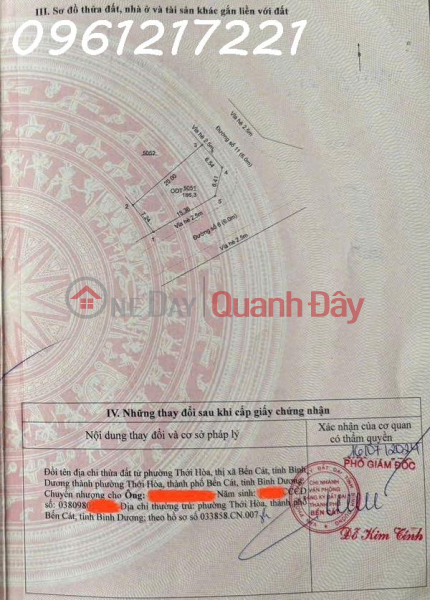 0961217221
III. Sơ đồ thửa đất, nhà ở và tài sản khác gắn liền với đất
Vỉa hè 2.5m
Đường số 11 (6.0m)
Vỉa hè 2.5m
5002
3
6.54
4
20.00
ODT
5051
8.41
5
2
15.36
7.24
Vỉa hè 2.5m
1
Đường số 6 (6.0m)
Vỉa hè 2.5m
ONEDAY Quanh Đây
IV. Những thay đổi sau khi cấp giấy chứng nhận
Nội dung thay đổi và cơ sở pháp lý
Xác nhận của cơ quan
có thẩm quyền
16/07/2024
PHÓ GIÁM ĐỐC
Đổi tên địa chỉ thửa đất từ phường Thới Hòa, thị xã Bến Cát, tỉnh Bình
Dương thành phường Thới Hòa, thành phố Bến Cát, tỉnh Bình Dương;
Chuyển nhượng cho Ông: Năm sinh: CCCD
số: 038098 Địa chỉ thường trú: phường Thới Hòa, thành phố
Bến Cát, tỉnh Bình Dương; theo hồ sơ số 033858.CN.007
CHI NHÁNH
VĂN PHÒNG
ĐĂNG KÝ ĐẤT ĐAI
THÀNH PHỐ
BẾN CÁT
Đỗ Kim Tính